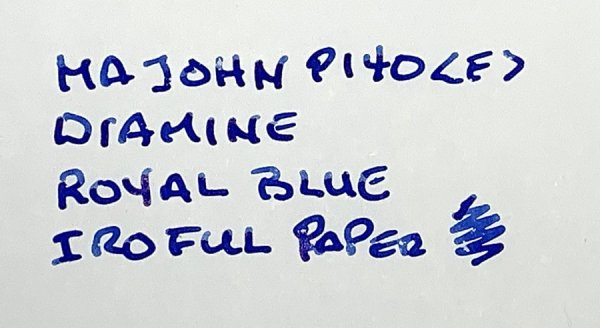 MAJOHN P140<F>
DIAMINE
ROYAL BLUE
IROFUL PAPER